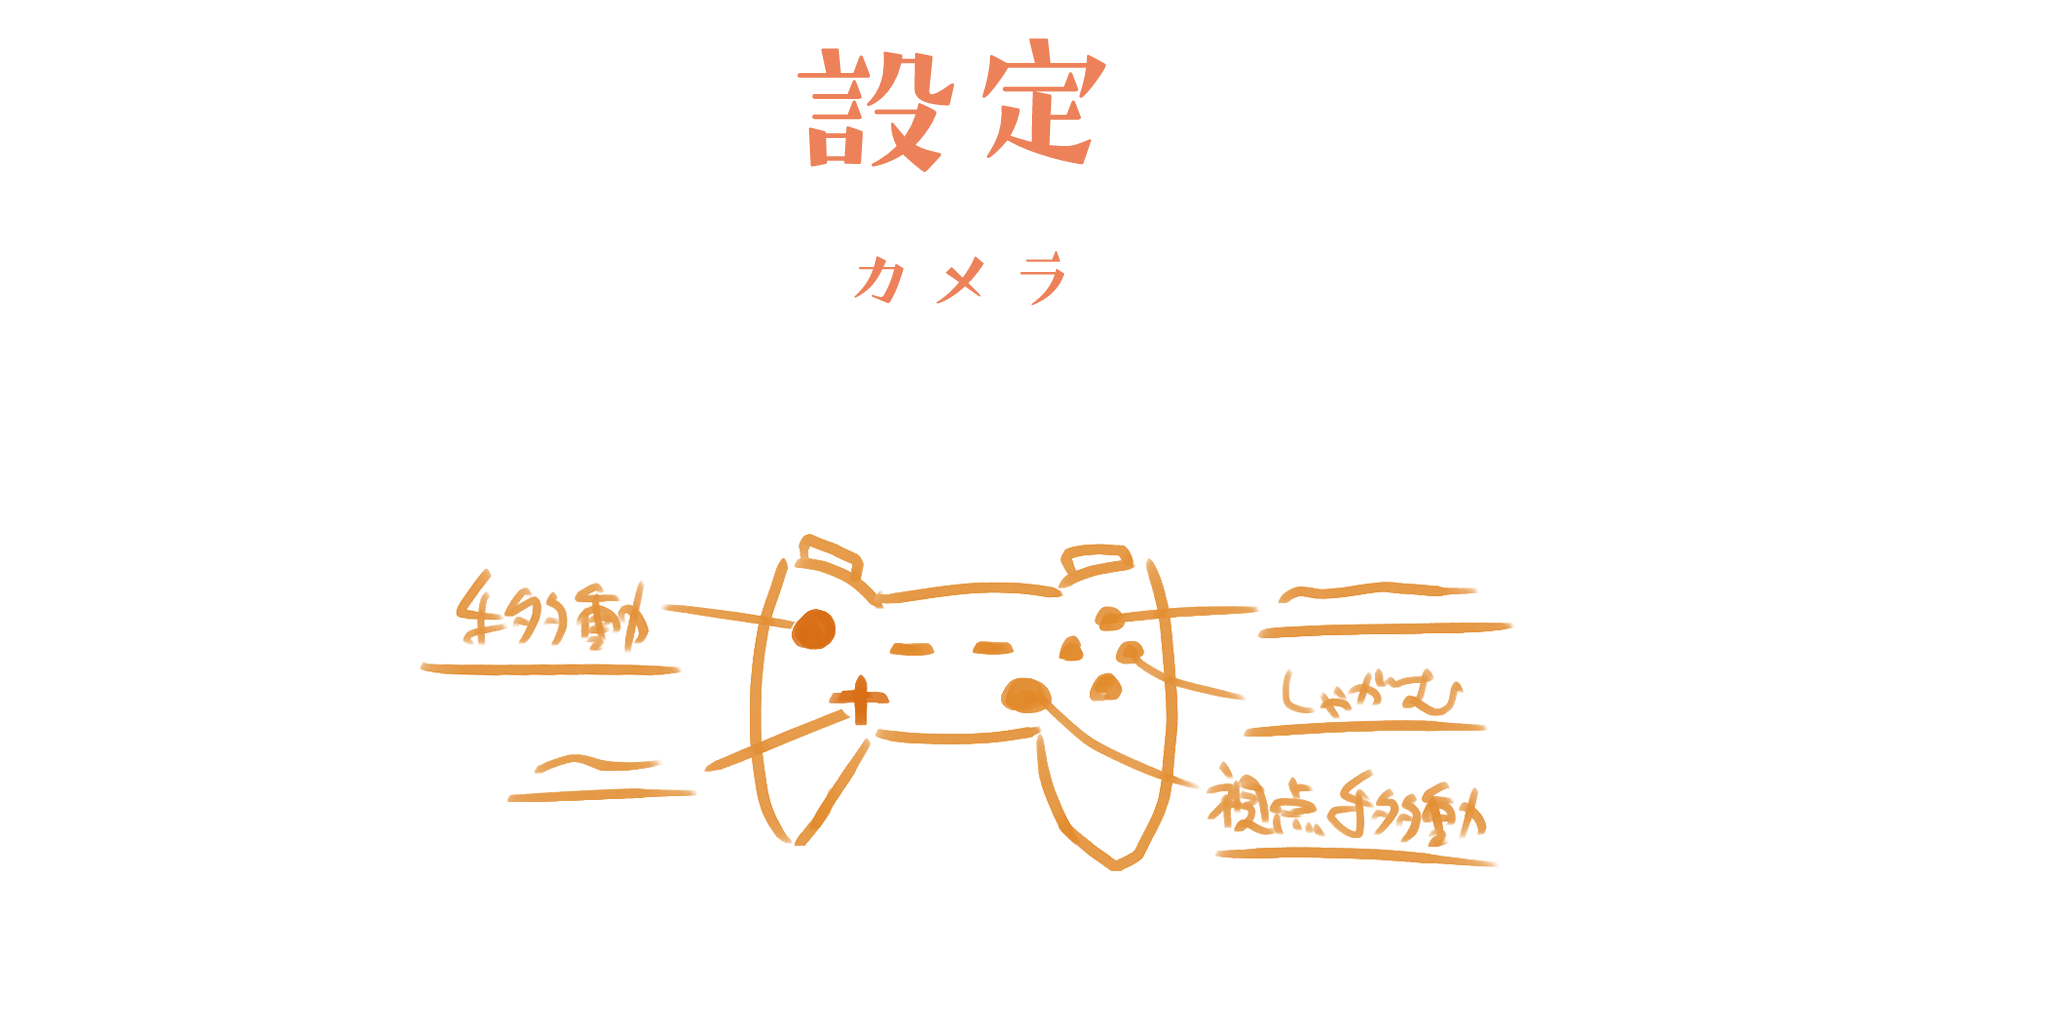 設定
カメラ
移動
しゃがむ
視点移動